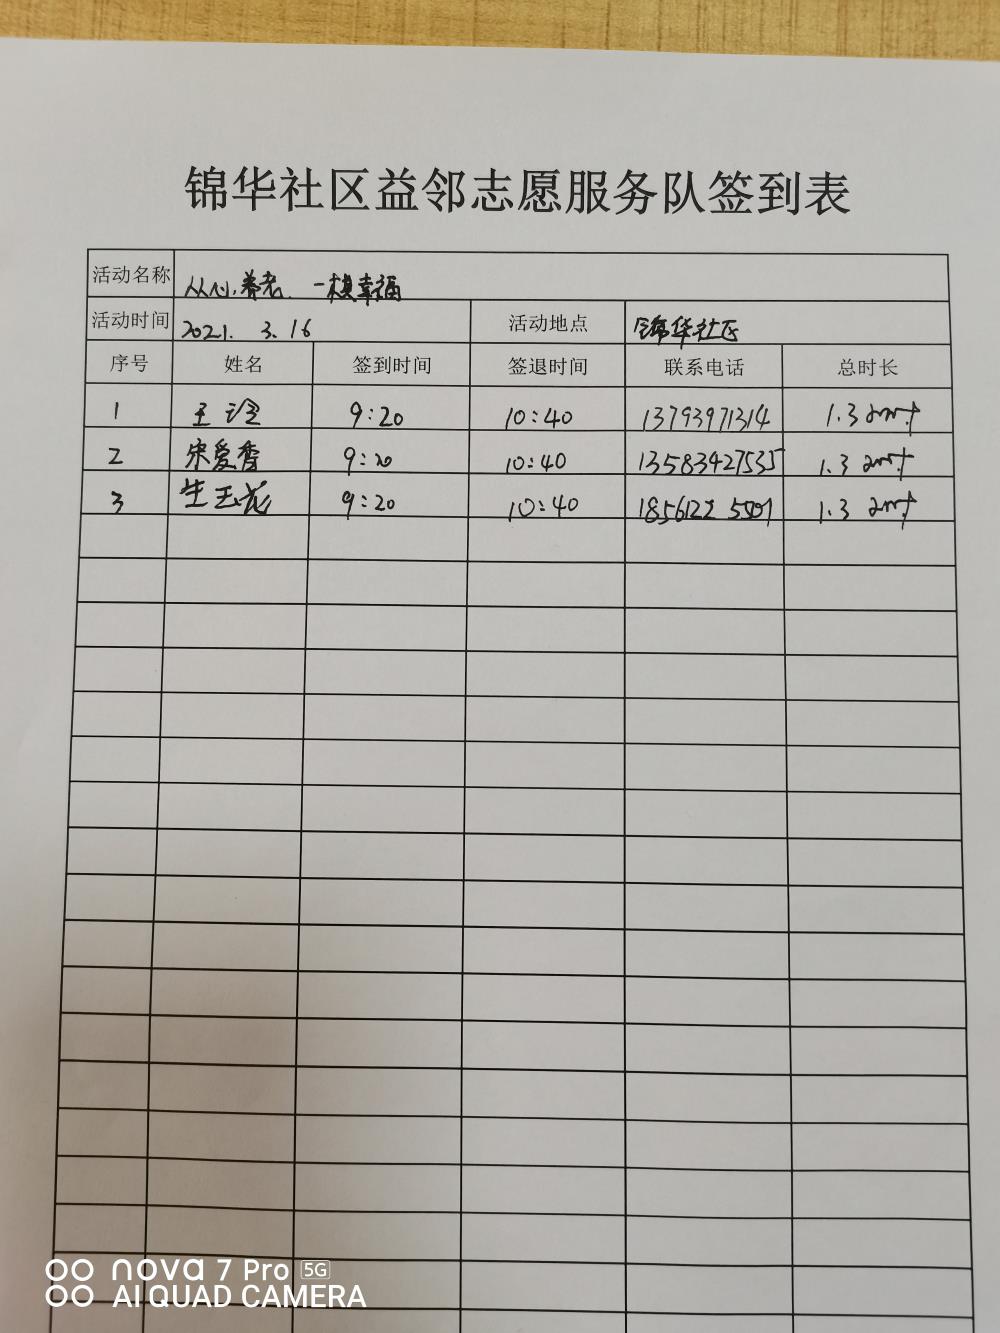 锦华社区益邻志愿服务队签到表
活动名称 从心养老、一模幸福
活动时间 2021. 3. 16 活动地点 锦华社区
序号 姓名 签到时间 签退时间 联系电话 总时长
1 王 9:20 10:40 13793971314 1.3
2 宋爱香 9:20 10:40 13583427535 1.3
3 牛玉花 9:20 10:40 1856122 1.3
nova 7 Pro 5G
AI QUAD CAMERA